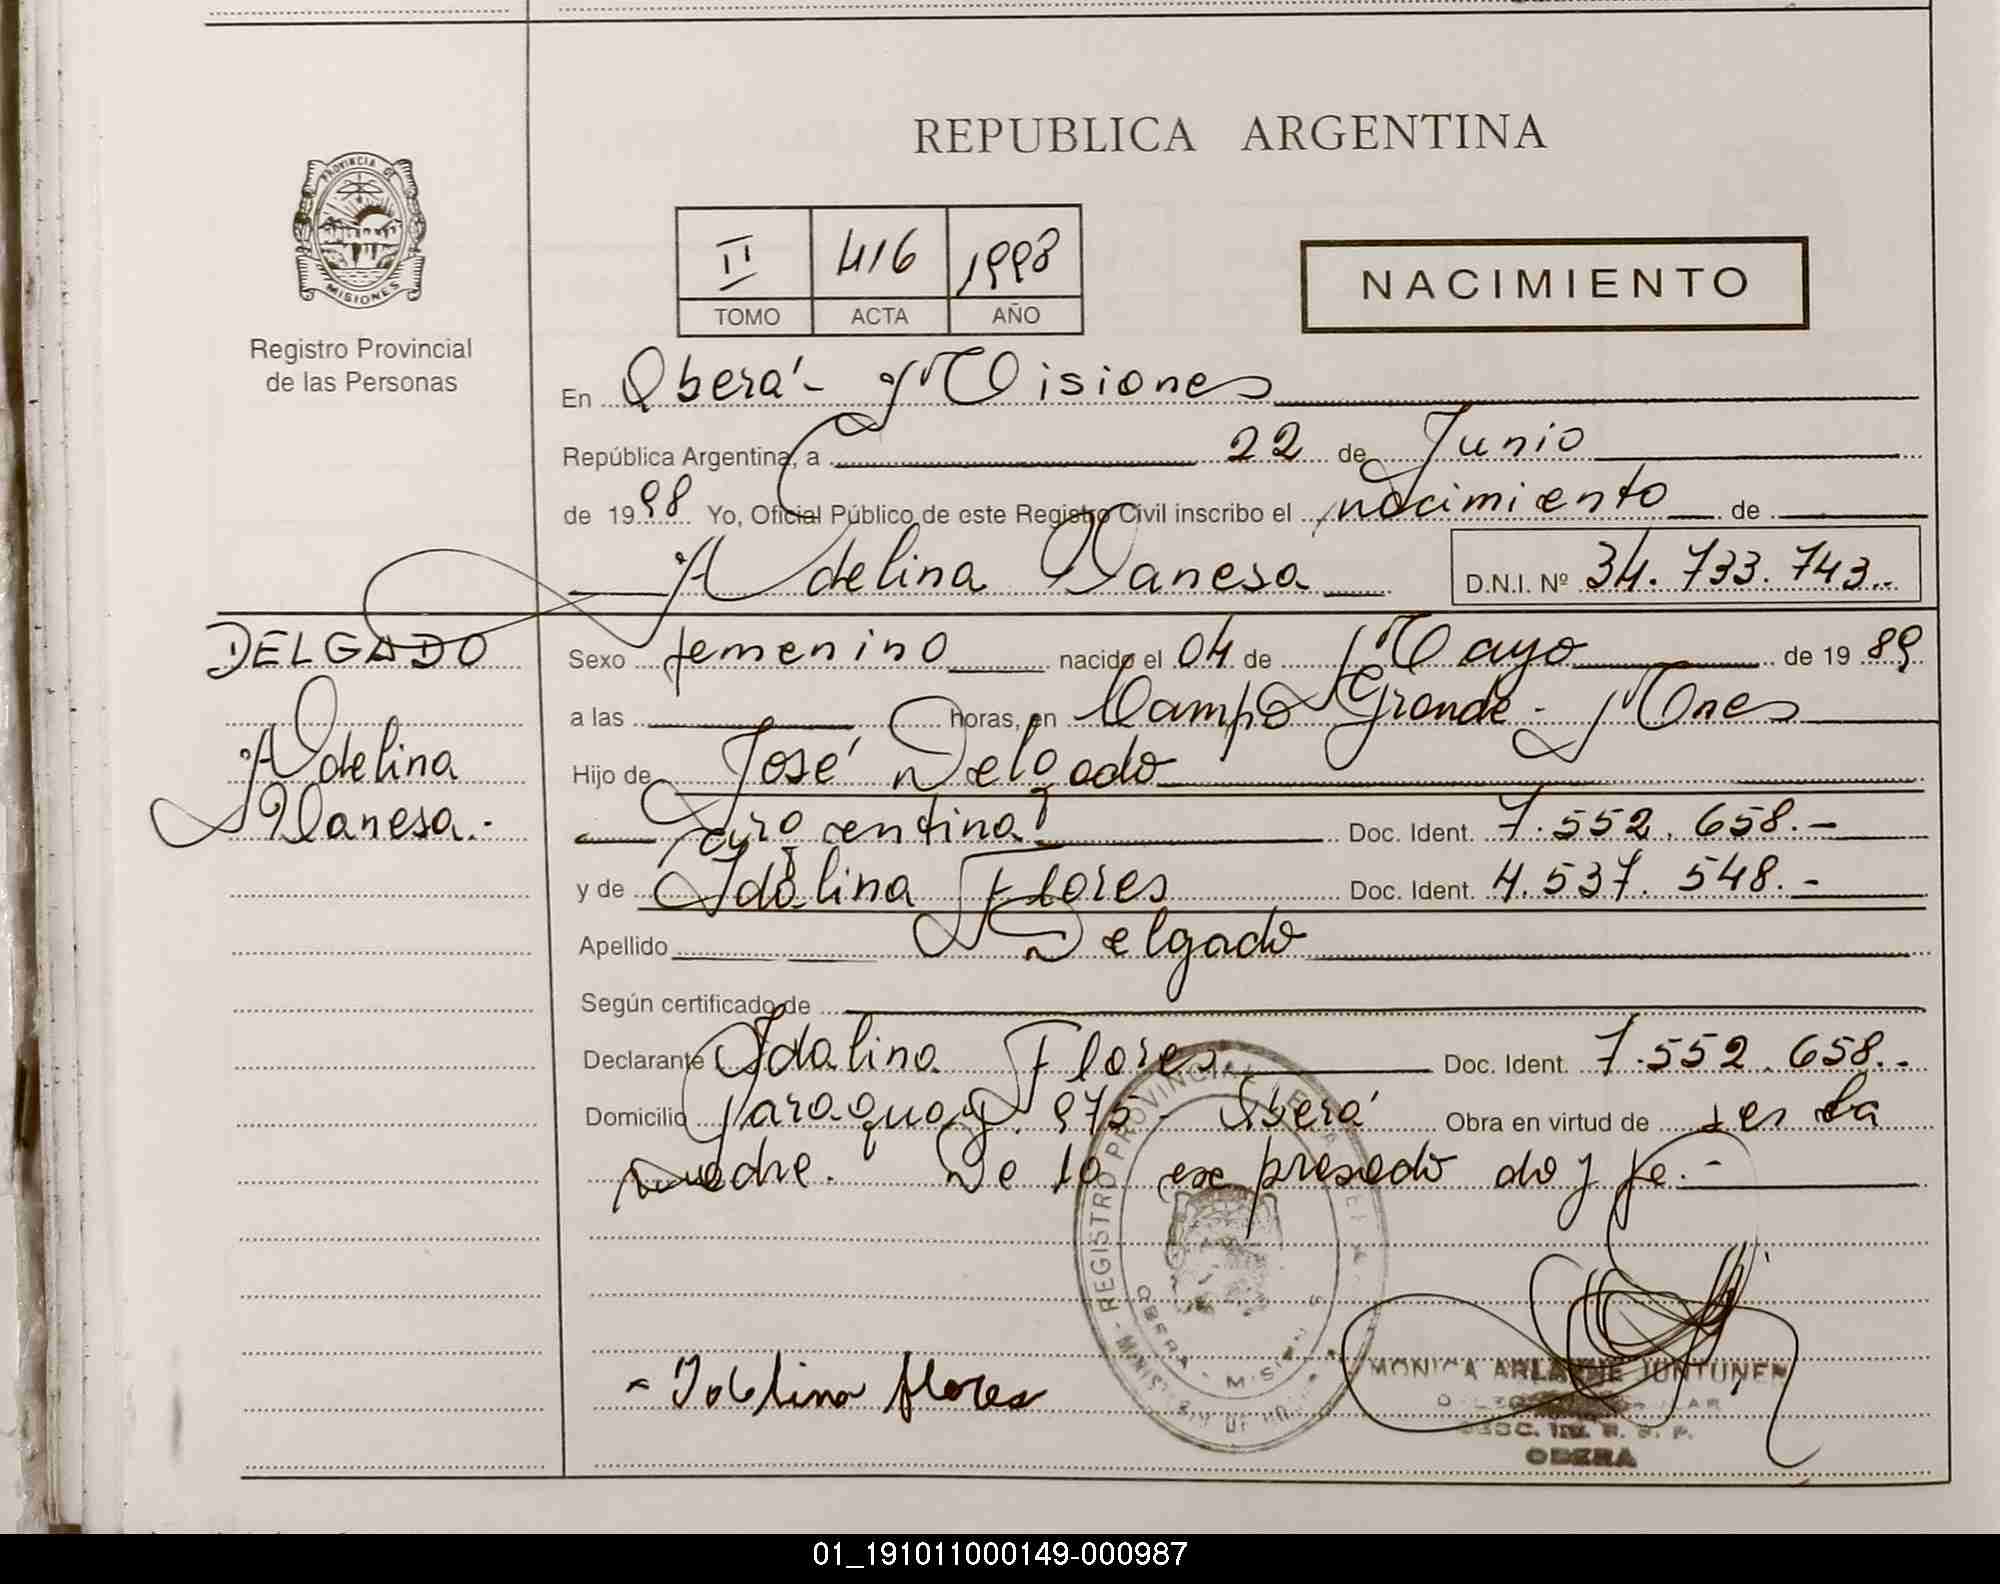 REPUBLICA ARGENTINA
PROVINCIA DE
MISIONES
Registro Provincial
de las Personas
II 416 1998
TOMO ACTA AÑO
NACIMIENTO
En Oberá - Misiones
República Argentina, a 22 de Junio
de 1998 Yo, Oficial Público de este Registro Civil inscribo el nacimiento de
Adelina Vanesa D.N.I. Nº 34.733.743.-
DELGADO
Adelina
Vanesa.-
Sexo femenino nacido el 04 de Mayo de 1989
a las horas, en Campo Grande - Mnes
Hijo de José Delgado
argentina Doc. Ident. 7.552.658.-
y de Idalina Flores Doc. Ident. 4.537.548.-
Apellido Delgado
Según certificado de
Declarante Idalina Flores Doc. Ident. 7.552.658.-
Domicilio Paraguay 975 - Oberá Obra en virtud de ser la
madre. De lo expresado doy fe.-
REGISTRO PROVINCIAL DE
OBERA - MISIONES
- Idelina flores
MONICA ARIANNE JUNTUNEN
OBERA
01_191011000149-000987